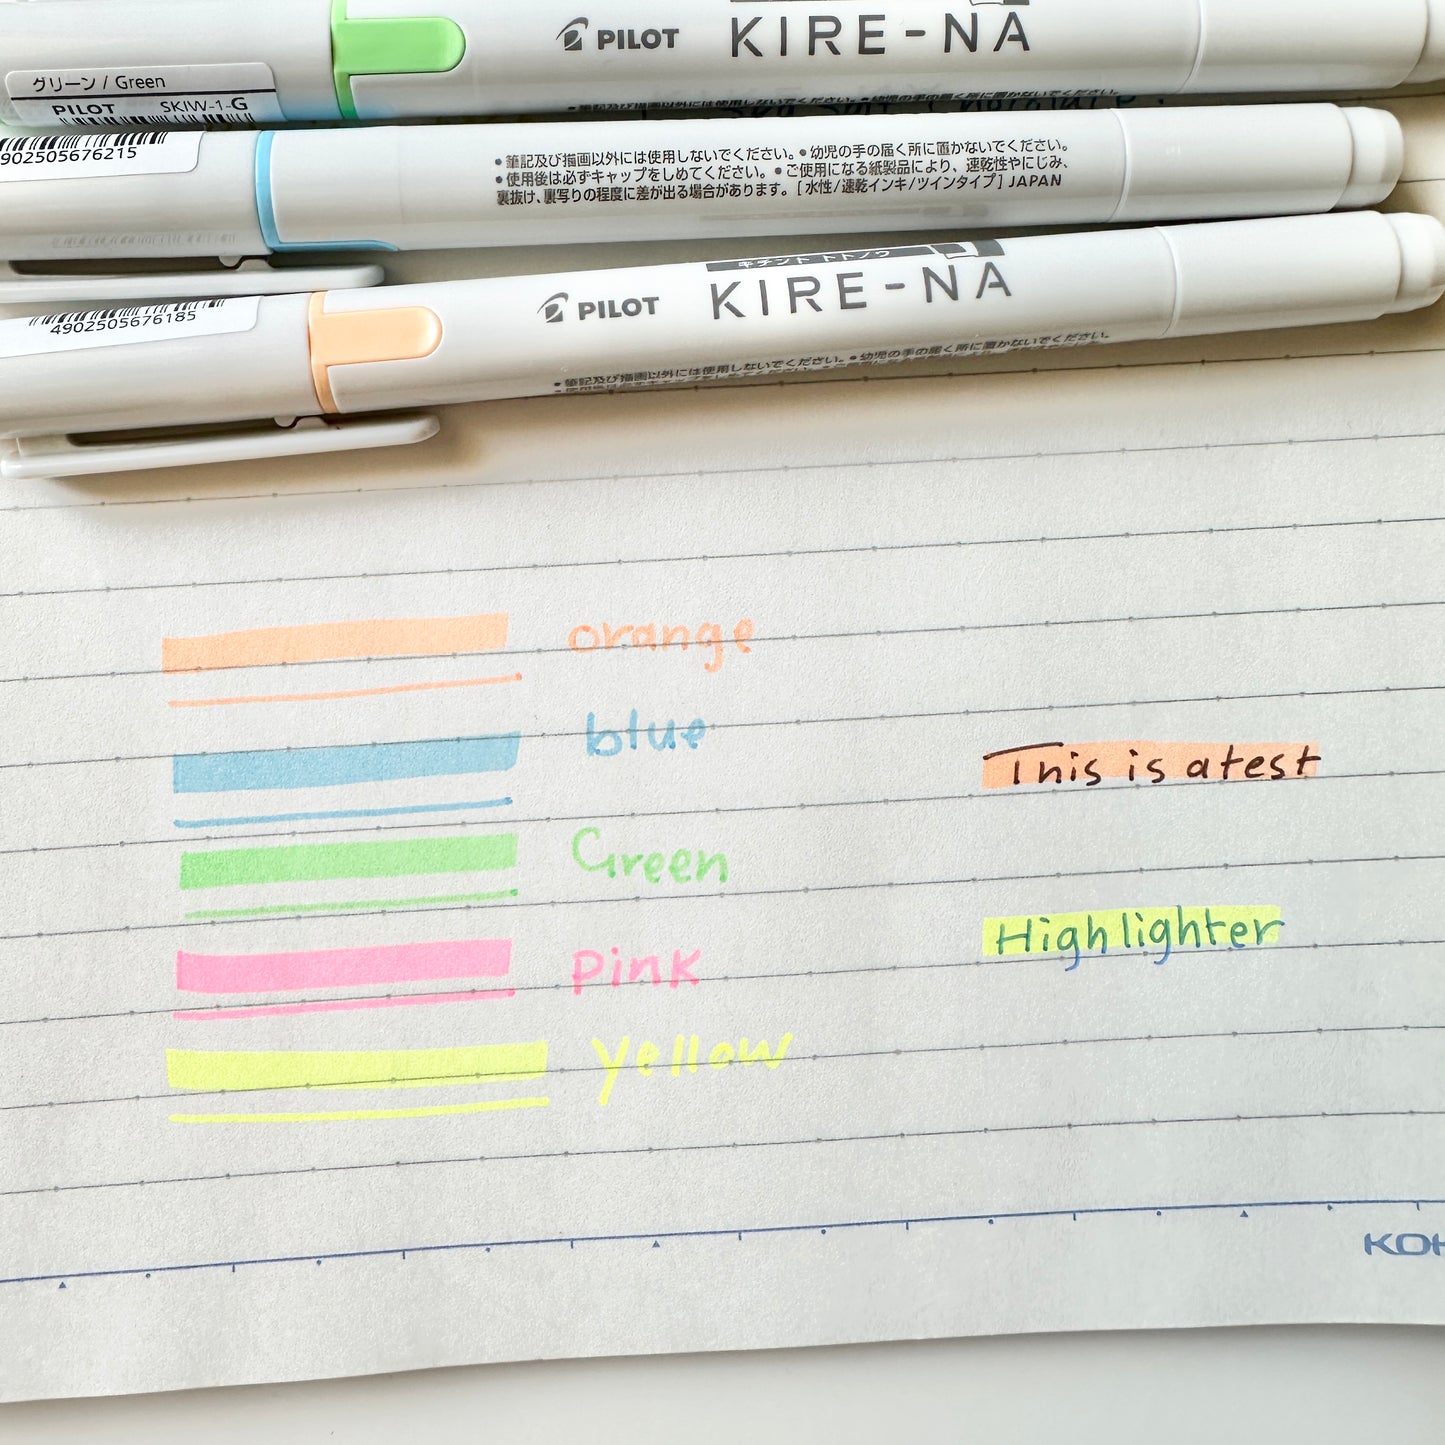 グリーン / Green
PILOT SKIW-1-G
PILOT KIRE-NA
•筆記及び描画以外には使用しないでください。•幼児の手の届く所に置かないでください。
902505676215
•筆記及び描画以外には使用しないでください。•幼児の手の届く所に置かないでください。
•使用後は必ずキャップをしめてください。•ご使用になる紙製品により、速乾性やにじみ、
裏抜け、裏写りの程度に差が出る場合があります。[水性/速乾インキ/ツインタイプ] JAPAN
キチント トトノウ
PILOT KIRE-NA
4902505676185
•筆記及び描画以外には使用しないでください。•幼児の手の届く所に置かないでください。
orange
blue
This is a test
Green
Highlighter
pink
yellow
KOK